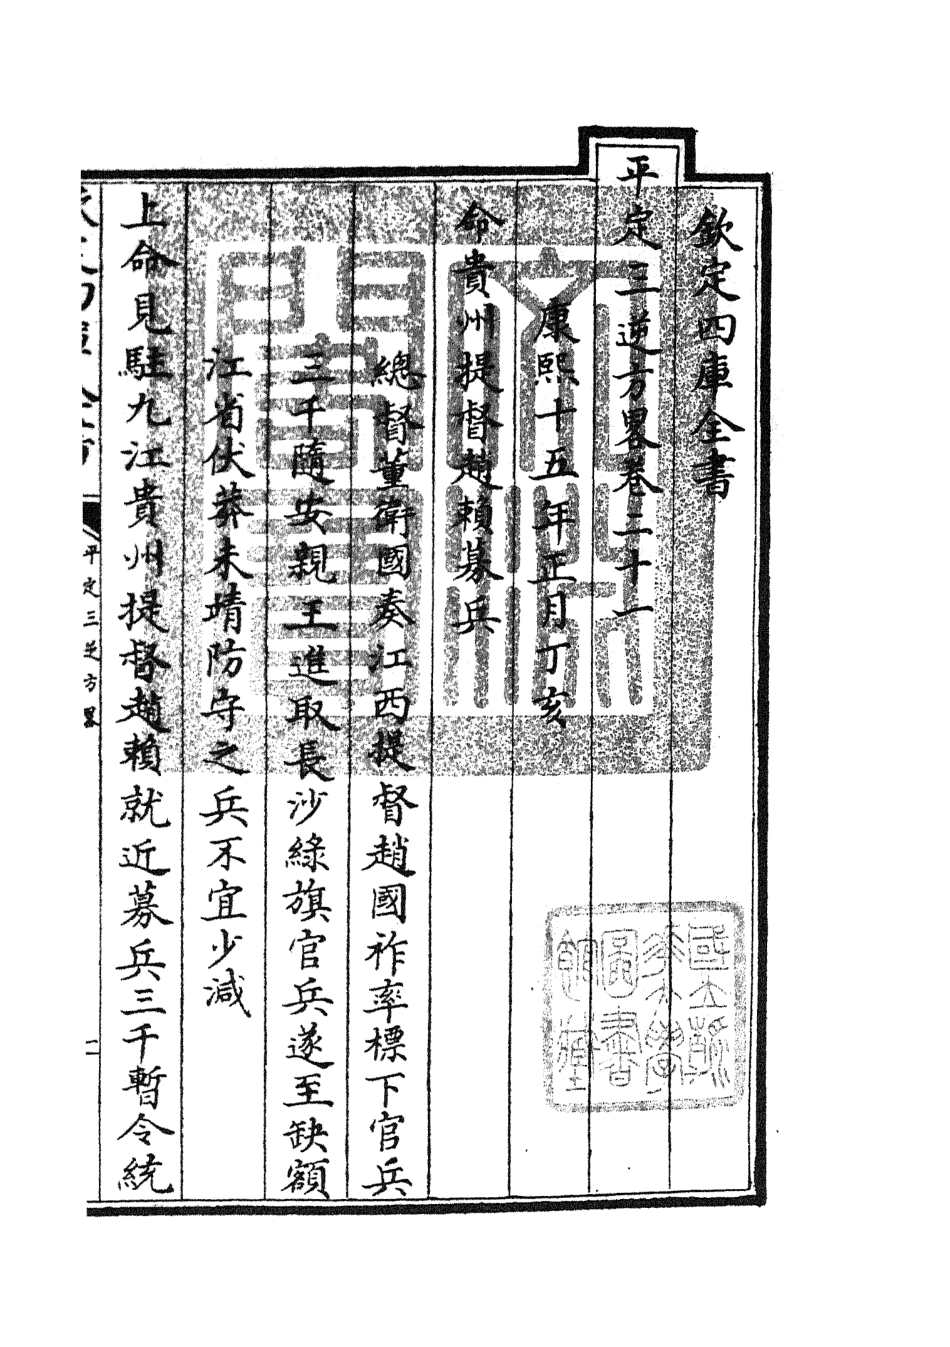 欽定四庫全書
平定三逆方畧卷二十一
康熙十五年正月丁亥
命貴州提督趙賴募兵
總督董衛國奏江西提督趙國祚率標下官兵
三千隨安親王進取長沙綠旗官兵遂至缺額
江省伏莽未靖防守之兵不宜少減
上命見駐九江貴州提督趙賴就近募兵三千暫令統
平定三逆方畧
圖書
館藏